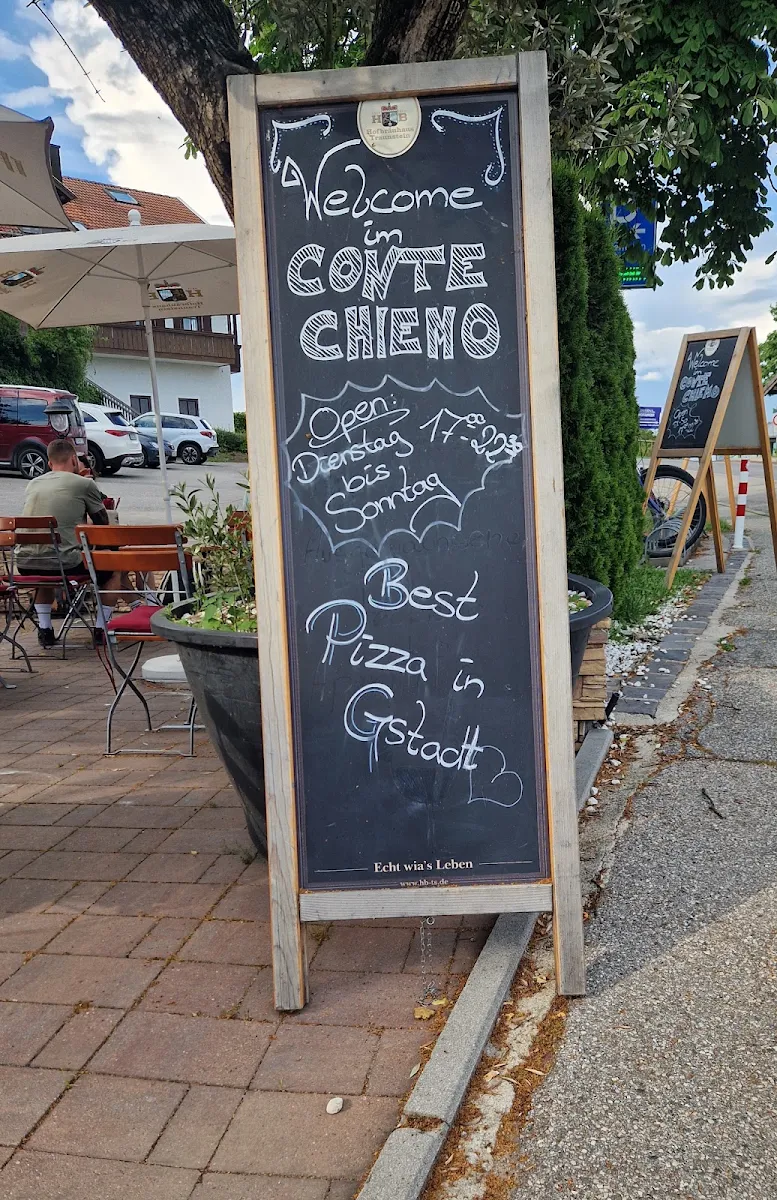 HB
Hofbräuhaus
Traunstein
Welcome
im
CONTE
CHIEMO
Open:
Dienstag 17.00-22.30
bis
Sonntag
Best
Pizza in
Gstadt
Echt wia's Leben
www.hb-ts.de
Welcome
im
CONTE
CHIEMO